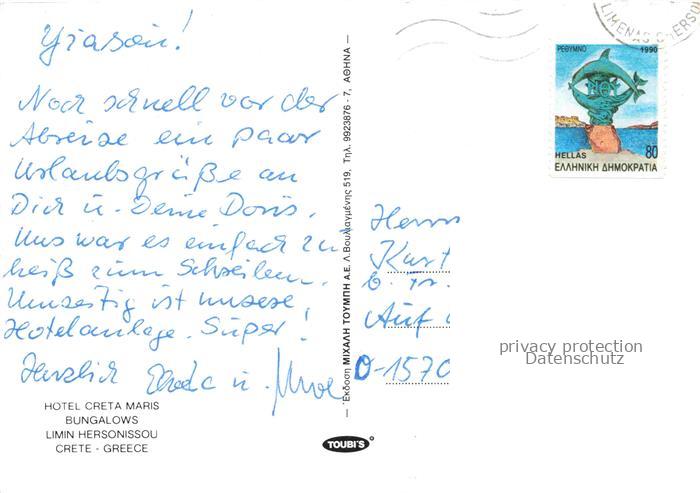 Yiasou!
Noch schnell vor der
Abreise ein paar
Urlaubsgrüße an
Dich u. Deine Doris.
Uns war es einfach zu
heiß zum Schreiben.
Umseitig ist unsere
Hotelanlage. Super!
Herzlich u.
HOTEL CRETA MARIS
BUNGALOWS
LIMIN HERSONISSOU
CRETE - GREECE
Έκδοση ΜΙΧΑΛΗ ΤΟΥΜΠΗ Α.Ε. Λ.Βουλιαγμένης 519, Τηλ. 9923876 - 7, ΑΘΗΝΑ
TOUBI'S
LIMENAS
ΡΕΘΥΜΝΟ 1990
HELLAS 80
ΕΛΛΗΝΙΚΗ ΔΗΜΟΚΡΑΤΙΑ
Herrn
Kurt
Auf
D-1570
privacy protection
Datenschutz